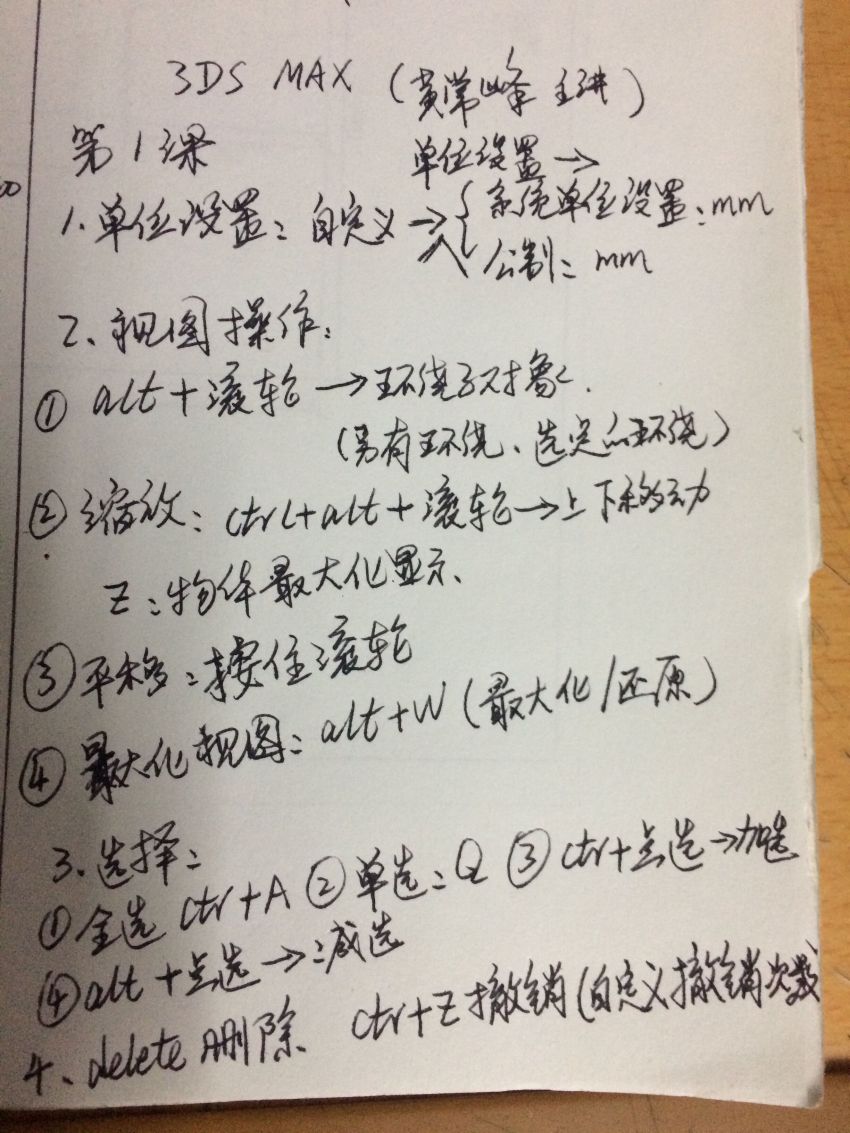 3DS MAX (黄常峰 主讲)
第1课
单位设置→
1.单位设置:自定义→{系统单位设置:mm
公制:mm
2、视图操作:
① alt+滚轮→环绕子对象.
(另有环绕、选定的环绕)
②缩放:ctrl+alt+滚轮→上下移动
Z:物体最大化显示、
③平移:按住滚轮
④最大化视图:alt+W(最大化/还原)
3.选择:
①全选 ctr+A ②单选:Q ③ctr+点选→加选
④alt+点选→减选
4、delete删除 ctr+Z撤销(自定义撤销次数